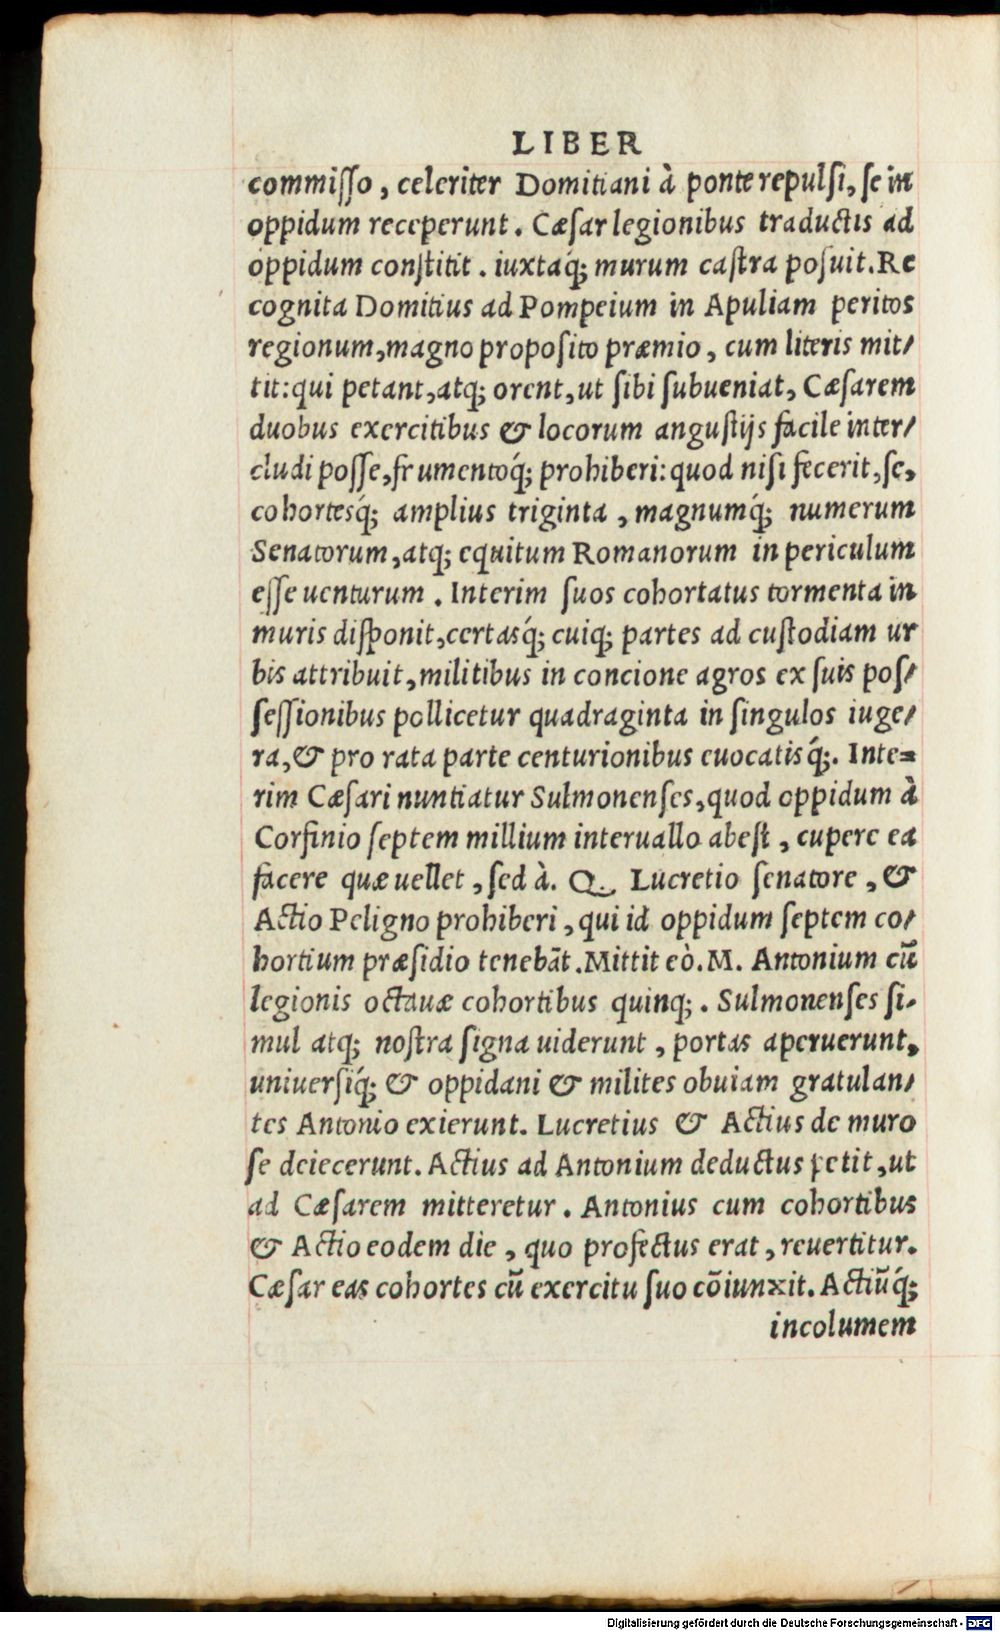 LIBER
commiſſo, celeriter Domitiani à ponte repulſi, ſe in
oppidum receperunt. Cæſar legionibus traductis ad
oppidum conſtitit. iuxtaq́; murum caſtra poſuit. Re
cognita Domitius ad Pompeium in Apuliam peritos
regionum, magno propoſito præmio, cum literis mit/
tit: qui petant, atq; orent, ut ſibi ſubueniat, Cæſarem
duobus exercitibus & locorum anguſtijs facile inter/
cludi poſſe, frumentoq́; prohiberi: quod niſi fecerit, ſe,
cohortesq́; amplius triginta, magnumq́; numerum
Senatorum, atq; equitum Romanorum in periculum
eſſe uenturum. Interim ſuos cohortatus tormenta in
muris diſponit, certasq́; cuiq; partes ad cuſtodiam ur
bis attribuit, militibus in concione agros ex ſuis poſ/
ſeſſionibus pollicetur quadraginta in ſingulos iuge/
ra, & pro rata parte centurionibus euocatisq́;. Inte=
rim Cæſari nuntiatur Sulmonenſes, quod oppidum à
Corfinio ſeptem millium interuallo abeſt, cupere ea
facere quæ uellet, ſed à. Q. Lucretio ſenatore, &
Actio Peligno prohiberi, qui id oppidum ſeptem co/
hortium præſidio tenebãt. Mittit eò. M. Antonium cũ
legionis octauæ cohortibus quinq;. Sulmonenſes ſi-
mul atq; noſtra ſigna uiderunt, portas aperuerunt,
uniuerſiq́; & oppidani & milites obuiam gratulan/
tes Antonio exierunt. Lucretius & Actius de muro
ſe deiecerunt. Actius ad Antonium deductus petit, ut
ad Cæſarem mitteretur. Antonius cum cohortibus
& Actio eodem die, quo profectus erat, reuertitur.
Cæſar eas cohortes cũ exercitu ſuo cõiunxit. Actiũq́;
incolumem
Digitalisierung gefördert durch die Deutsche Forschungsgemeinschaft - DFG